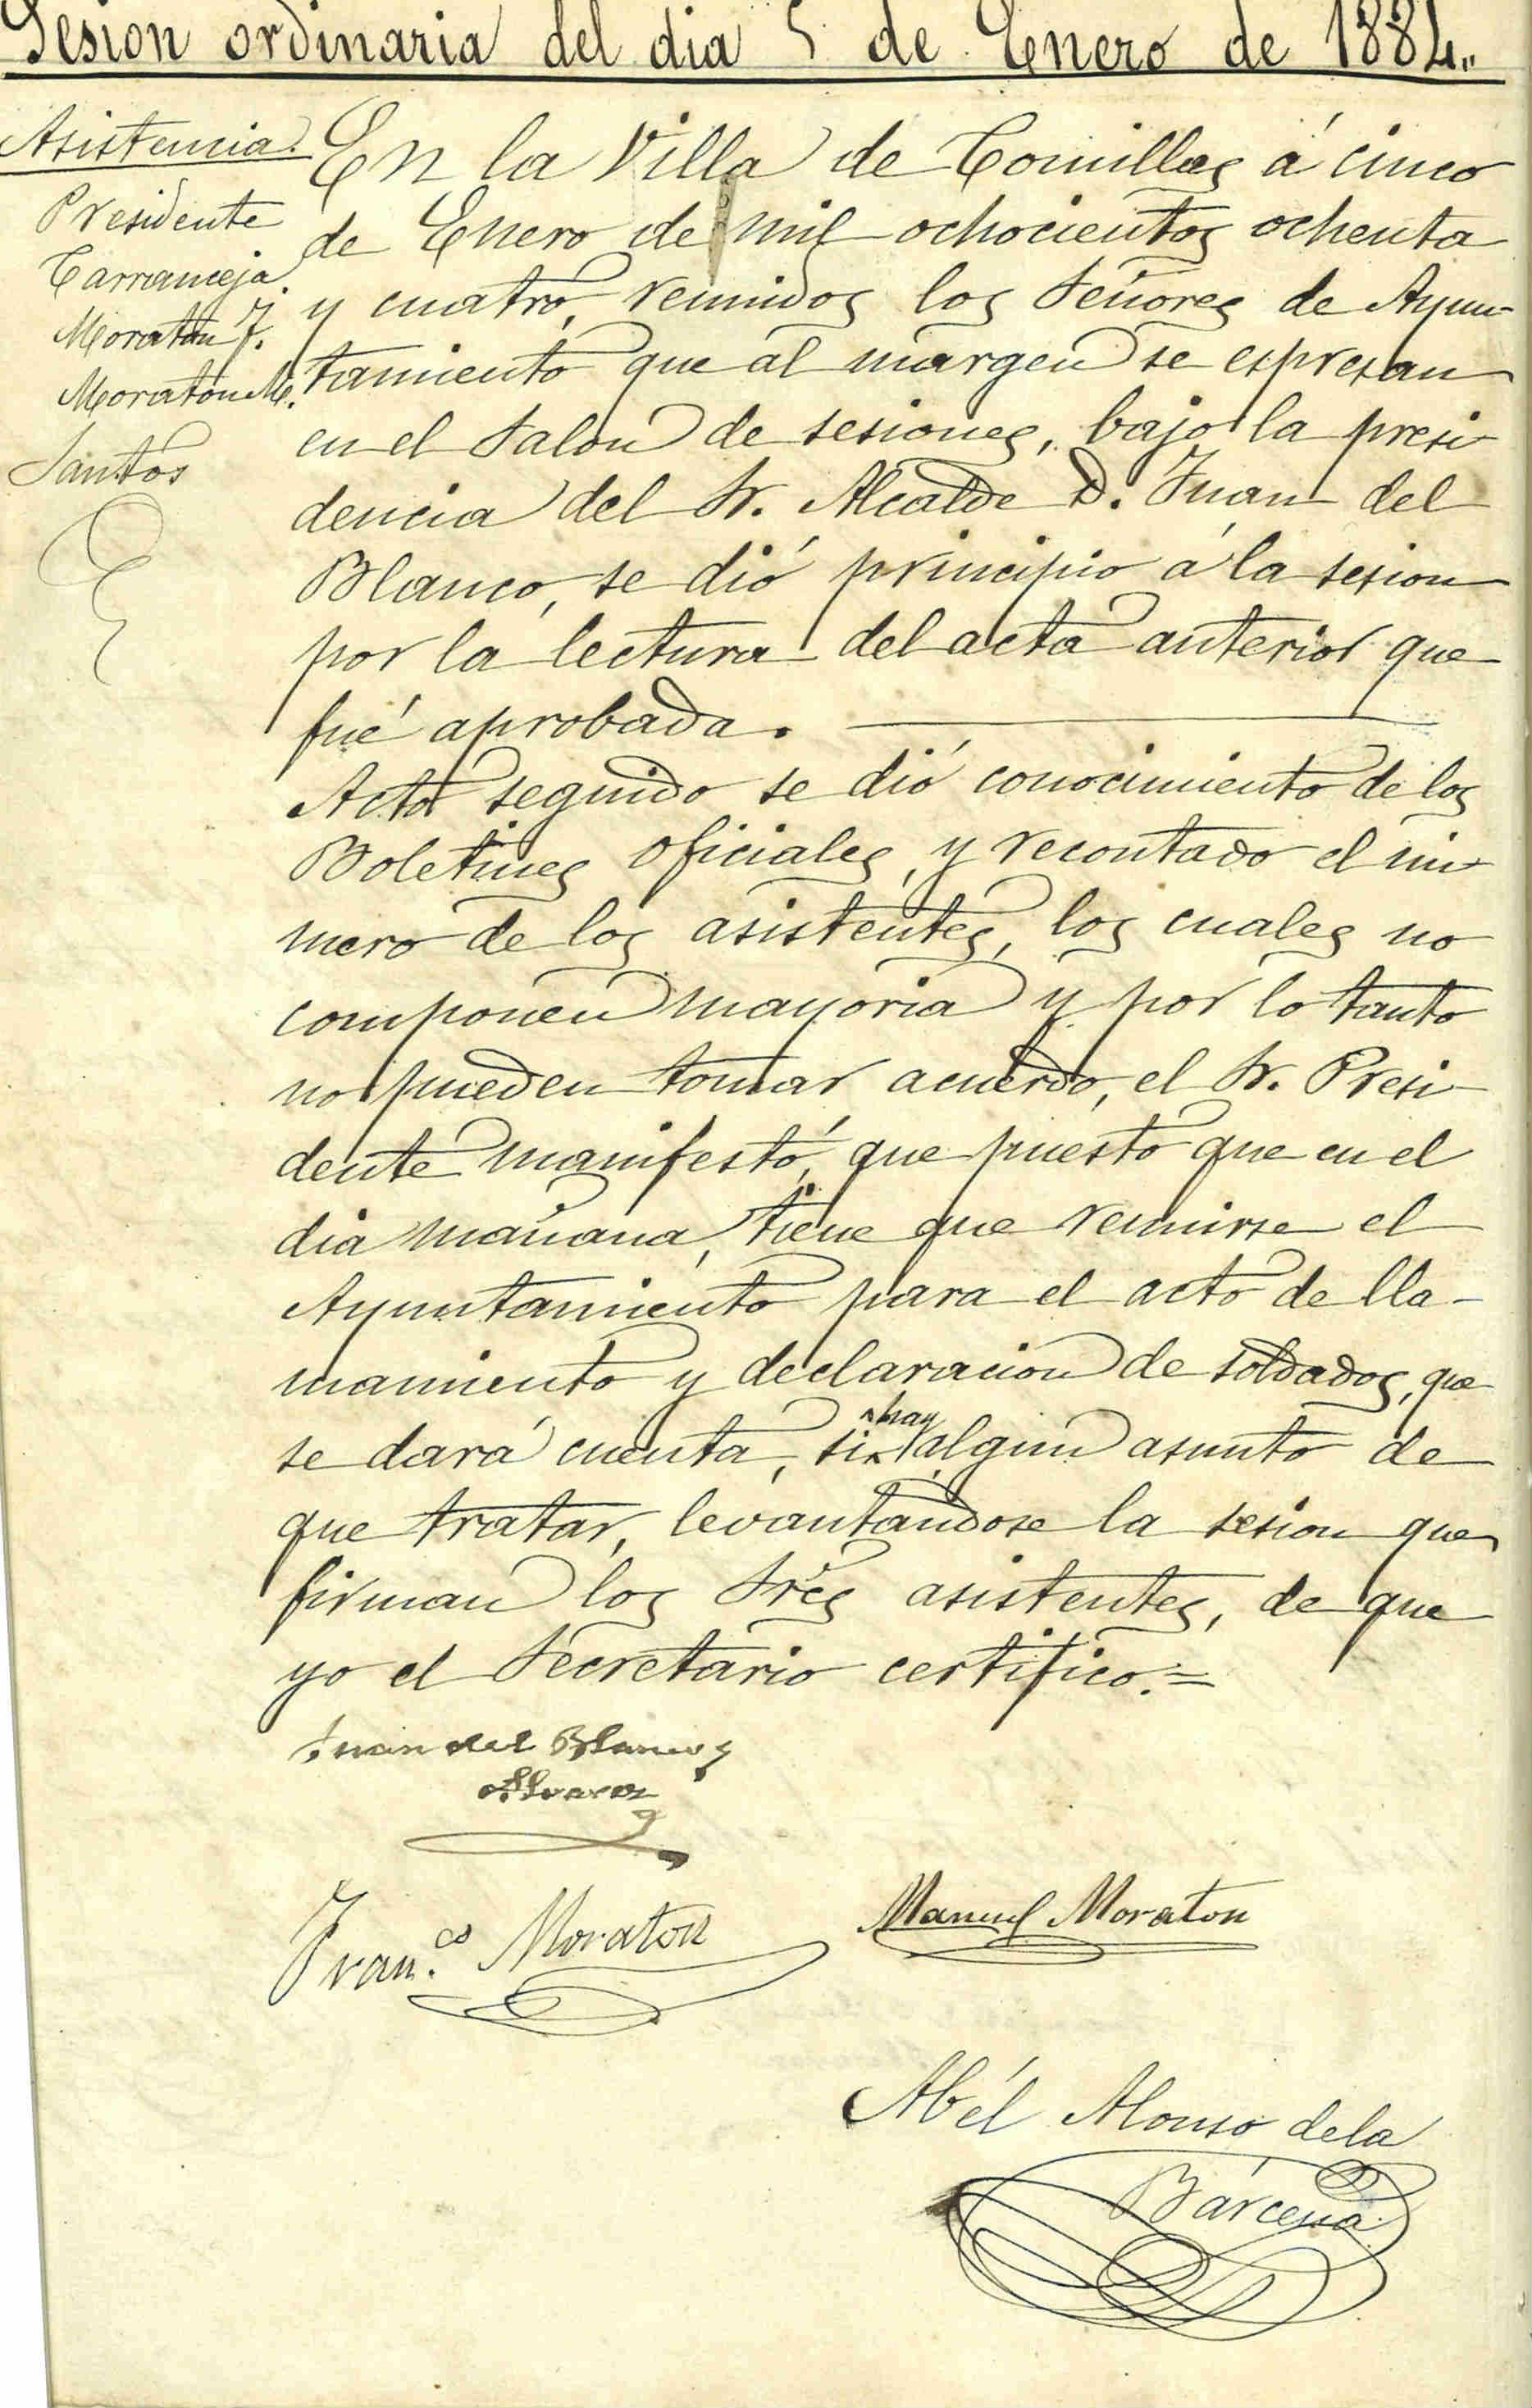 Sesion ordinaria del dia 5 de Enero de 1884.
Asistencia
Presidente
Carranceja.
Moraton F.
Moraton M.
Santos
En la Villa de Comillas á cinco
de Enero de mil ochocientos ochenta
y cuatro, reunidos los Señores de Ayun-
tamiento que al margen se espresan
en el Salon de sesiones, bajo la presi-
dencia del Sr. Alcalde D. Juan del
Blanco, se dió principio á la sesion
por la lectura del acta anterior que
fué aprobada.
Acto seguido se dió conocimiento de los
Boletines oficiales, y recontado el nú-
mero de los asistentes, los cuales no
componen mayoria y por lo tanto
no pueden tomar acuerdo, el Sr. Presi-
dente manifestó, que puesto que en el
dia mañana, tiene que reunirse el
Ayuntamiento para el acto de lla-
mamiento y declaracion de soldados, que
se dará cuenta, si hay algun asunto de
que tratar, levantándose la sesion que
firman los Sres asistentes, de que
yo el Secretario certifico.=
Juan del Blanco y
Alvarez
Fran.co Moraton
Manuel Moraton
Abél Alonso de la
Bárcena